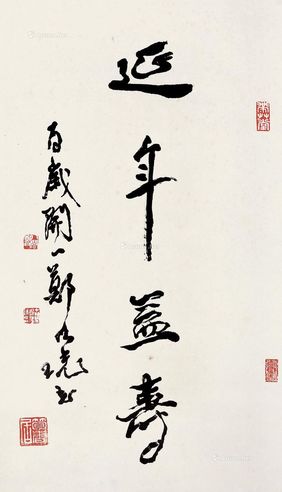 延年益壽
百歲開一鄭乃珖書